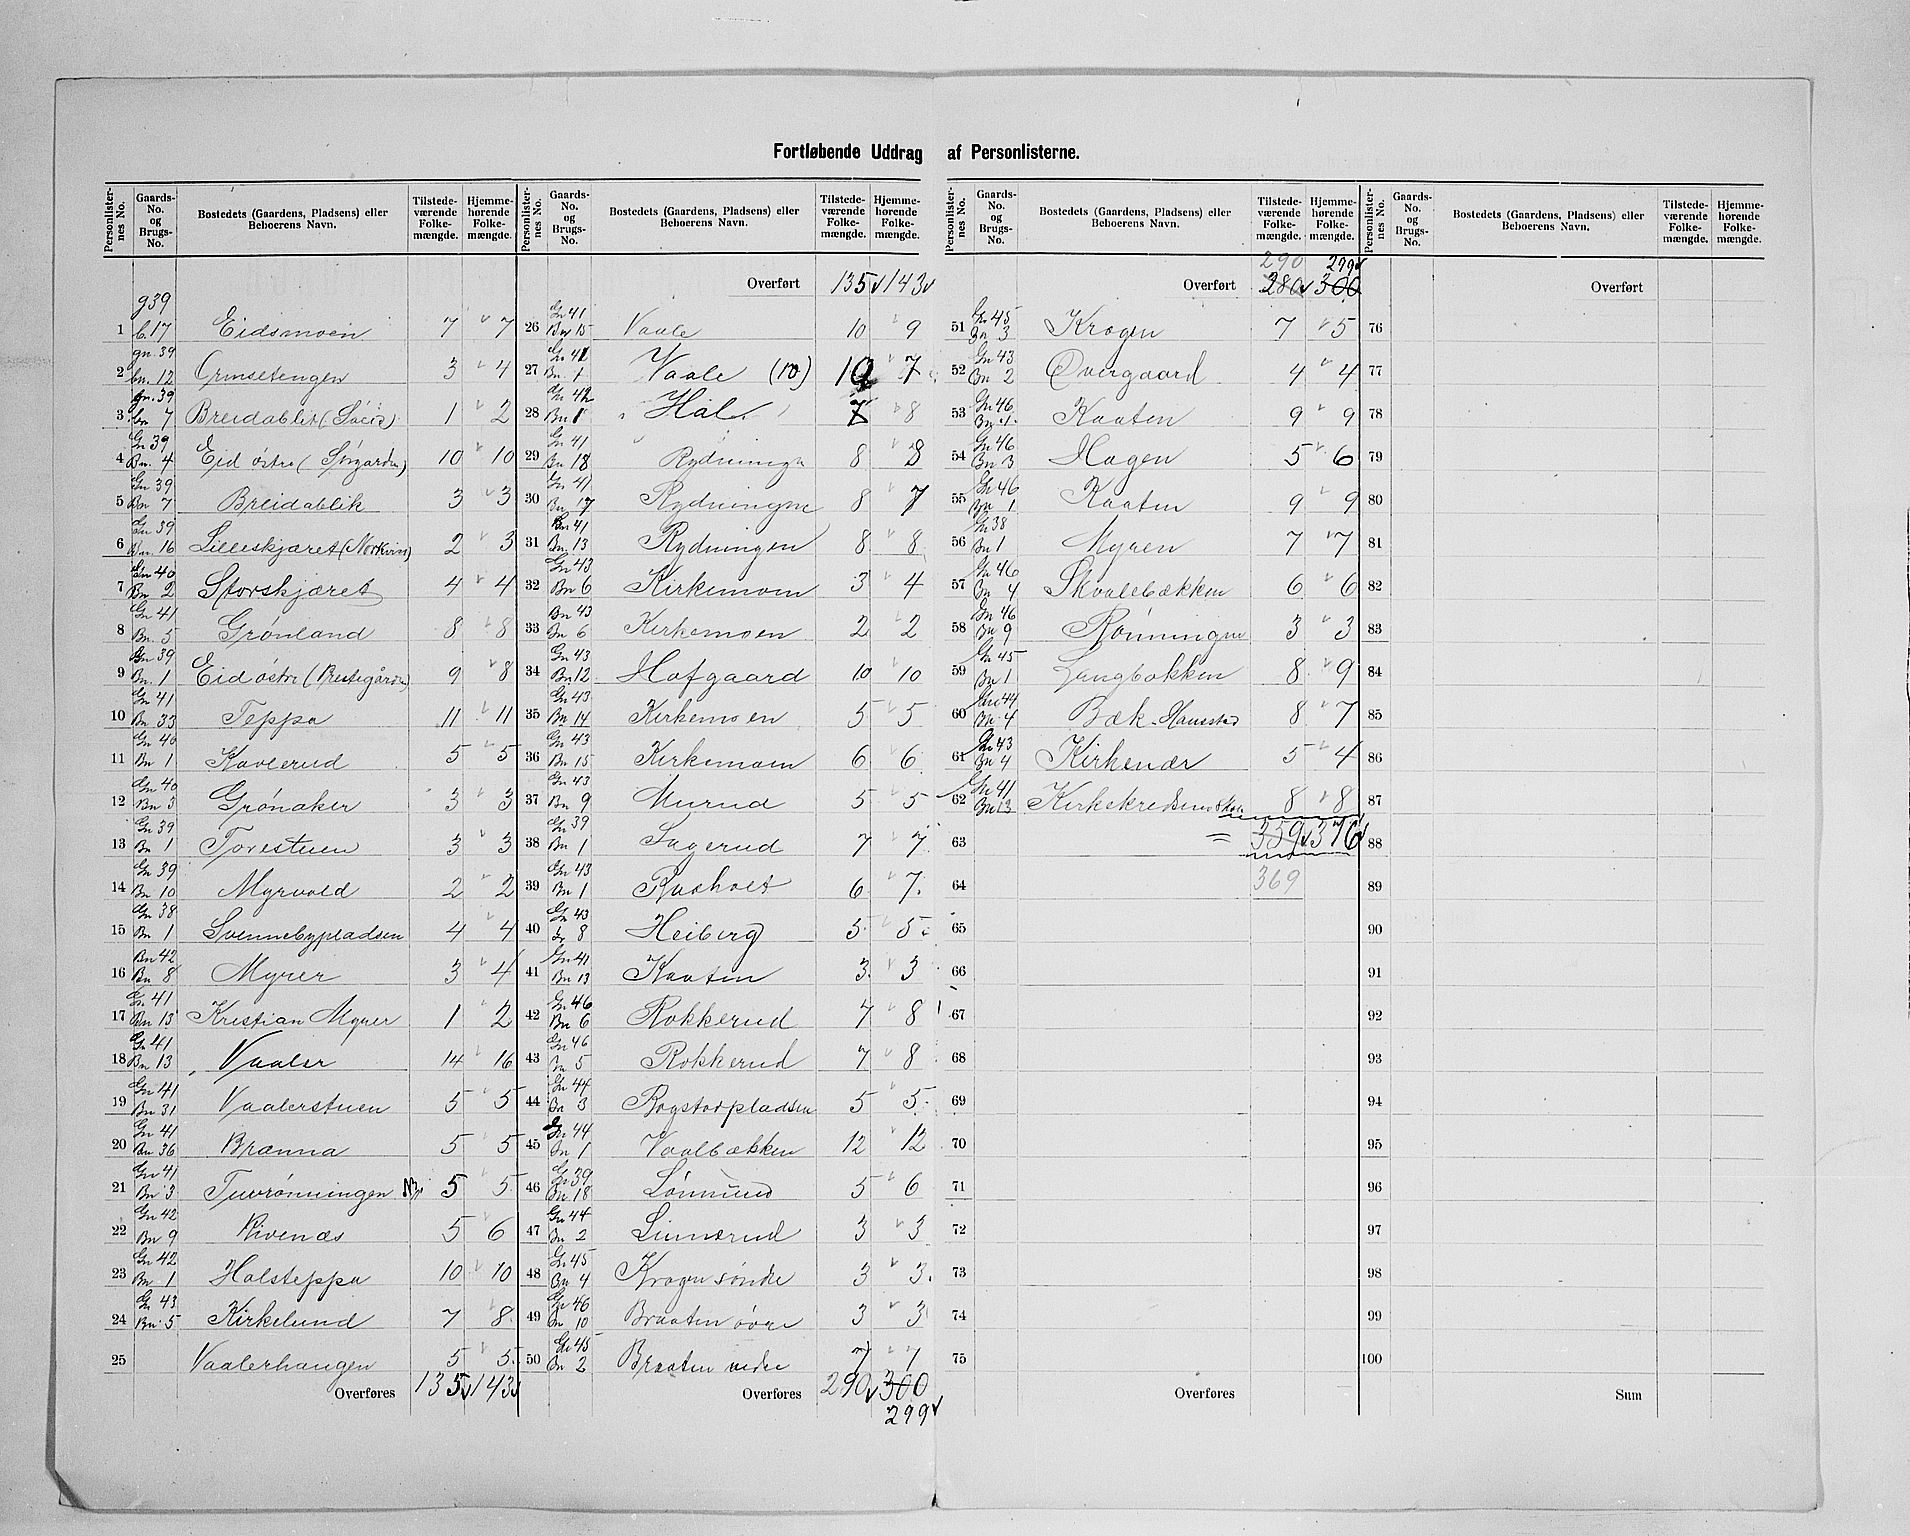 Fortløbende Uddrag af Personlisterne.
Personlisternes No. | Gaards-No. og Brugs-No. | Bostedets (Gaardens, Pladsens) eller Beboerens Navn. | Tilstedeværende Folkemængde. | Hjemmehørende Folkemængde.
1 g 39 b. 17 Eidsmoen 7 7
2 gn. 39 bn. 12 Ormsetengen 3 4
3 gn. 39 bn 7 Breidablik 1 2
4 Gn 39 Bn. 4 Eid østre 10 10
5 Gn 39 Bn 7 Breidablik 3 3
6 Gn 39 Bn. 16 Lilleskjæret 2 3
7 Gn 40 Bn 2 Storskjæret 4 4
8 Gn 41 Bn. 5 Grønland 8 8
9 Gn 39 Bn. 1 Eid østre (Prestegården) 9 8
10 Gn 41 Bn. 33 Teppa 11 11
11 Gn 40 Bn 1 Kavlerud 5 5
12 Gn 40 Bn 3 Grønaker 3 3
13 Gn 39 Bn 1 Torestuen 3 3
14 Gn 39 Bn 10 Myrvold 2 2
15 Gn 38 Bn 1 Svennebypladsen 4 4
16 Bn 42 Bn 8 Myrer 3 4
17 Gn 41 Bn 13 Kristian Myrer 1 2
18 Gn 41 Bn 13 Vaaler 14 16
19 Gn 41 Bn 31 Vaalerstuen 5 5
20 Gn 41 Bn 36 Brænna 5 5
21 Gn 41 Bn 3 Tuvrønningen 5 5
22 Gn 42 Bn 9 Rivenæs 5 6
23 Gn 42 Bn 1 Halsteppa 10 10
24 Gn 43 Bn 5 Kirkelund 7 8
25 Vaalerhaugen 5 5
Overføres 135 143
Overført 135 143
26 Gn 41 Bn 15 Vaale 10 9
27 Gn 41 Bn. 1 Vaale (10) 10 7
28 Gn 42 Bn 1 Hal 7 8
29 Gn 41 Bn 18 Rydningen 8 8
30 Gn 41 Bn 17 Rydningen 8 7
31 Bn 41 Bn. 13 Rydningen 8 8
32 Gn 43 Bn 6 Kirkemoen 3 4
33 Bn 43 Bn 6 Kirkemoen 2 2
34 Gn 43 Bn 12 Hofgaard 10 10
35 Gn 43 Bn 14 Kirkemoen 5 5
36 Gn 43 Bn 15 Kirkemoen 6 6
37 Gn 43 Bn 9 Murud 5 5
38 Gn 39 Bn 1 Sagerud 7 7
39 Gn 43 Bn 1 Rasholt 6 7
40 Gn 43 8 Heiberg 5 5
41 Gn 41 Bn 13 Kaaten 3 3
42 Gn 46 Bn 6 Rokkerud 7 8
43 Gn 46 5 Rokkerud 7 8
44 Gn 44 Bn 3 Rogstadpladsen 5 5
45 Gn 44 Bn 1 Vaalbækken 12 12
46 Gn 39 Bn 18 5 6
47 Gn 44 Bn 2 Linnerud 3 3
48 Gn 45 Bn 4 Krogen søndre 3 3
49 Gn 46 Bn 10 Braaten øvre 3 3
50 Gn 45 Bn 2 Braaten nedre 7 7
Overføres 290 300
299
290 299
Overført 280 300
51 Gn 45 Bn 3 Krogen 7 5
52 Gn 43 Bn 2 Overgaard 4 4
53 Gn 46 Bn 1 Kaaten 9 9
54 Gn 46 Bn 3 Hagen 5 6
55 Gn 46 Bn 1 Kaaten 9 9
56 Gn 38 Bn 1 Myren 7 7
57 Gn 46 Bn 4 Skvalebækken 6 6
58 Gn 46 Bn 9 Rønningen 3 3
59 Gn 45 Bn 1 Langbakken 8 9
60 Gn 44 Bn 4 Bæk 8 7
61 Gn 43 Bn 4 Kirkenær 5 4
62 Gn 41 Bn 13 Kirkekredsens 8 8
63 = 359 376
64 369
65
66
67
68
69
70
71
72
73
74
75
Overføres
Overført
76
77
78
79
80
81
82
83
84
85
86
87
88
89
90
91
92
93
94
95
96
97
98
99
100
Sum